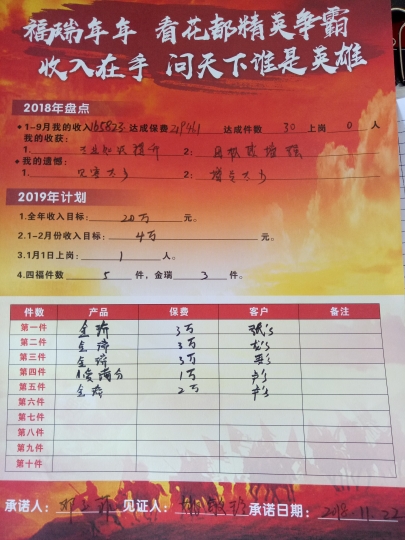 福瑞年年 看花都精英争霸
收入在手 问天下谁是英雄
2018年盘点
•1-9月我的收入165823达成保费219461 达成件数 30 上岗 0 人
•我的收获:
1. 专业知识提升 2:
•我的遗憾:
1. 见客太少 2: 增员太少
2019年计划
1.全年收入目标: 20万 元。
2.1-2月份收入目标: 4万 元。
3.1月1日上岗: 1 人。
4.四福件数 5 件,金瑞 3 件。
件数 产品 保费 客户 备注
第一件 金瑞 3万 张
第二件 金瑞 3万
第三件 金瑞 3万
第四件 1万
第五件 金瑞 2万
第六件
第七件
第八件
第九件
第十件
承诺人: 见证人: 承诺日期: 2018.11.22